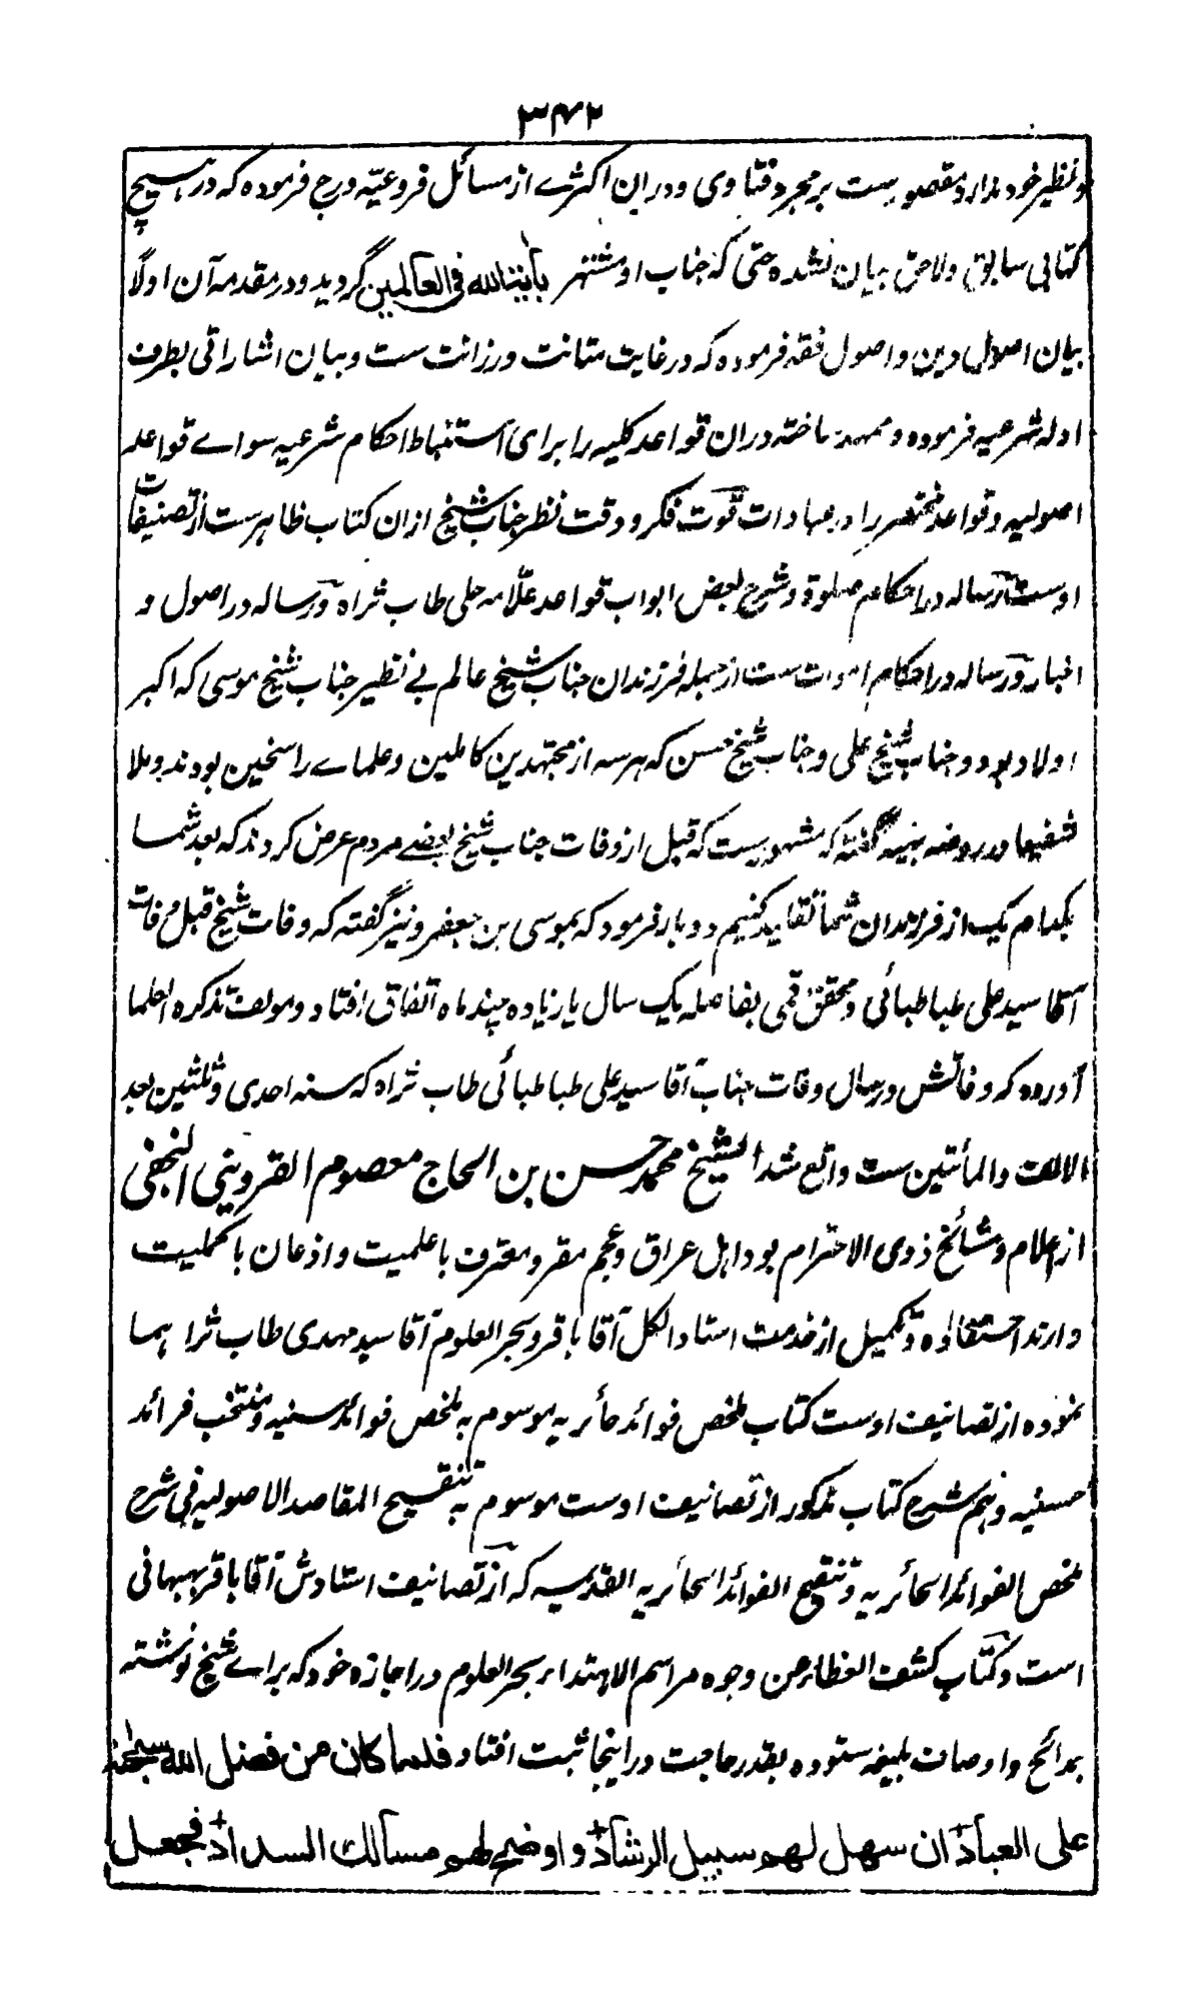 ۳۴۲
و نظیر خود ندارد مقصورست بر مجرد فتاوی و دران اکثرے از مسائل فروعیّه درج فرموده که در هیچ
کتابی سابق و لاحق بیان نشده حتی که جناب او مشتهر بآیةالله فی العالمین گردید و در مقدمه آن اولًا
بیان اصول دین و اصول فقه فرموده که در غایت متانت و رزانت ست و بیان اشاراتی بطرف
ادله شرعیه فرموده و ممهد ساخته دران قواعد کلیه را برای استنباط احکام شرعیه سواے قواعد
اصولیه و قواعد مختصه را در عبادات قوت فکر و دقت نظر جناب شیخ ازان کتاب ظاهرست از تصنیفات
اوست رساله در احکام صلوة و شرح بعض ابواب قواعد علّامه حلی طاب ثراه و رساله در اصول و
اخبار و رساله در احکام اموات ست از جمله فرزندان جناب شیخ عالم بے نظیر جناب شیخ موسی که اکبر
اولاد بود و جناب شیخ علی و جناب شیخ حسن که هر سه از مجتهدین کاملین و علماے راسخین بودند و ملا
شفیعا در روضه بهیه گفته که مشهورست که قبل از وفات جناب شیخ بعضے مردم عرض کردند که بعد شما
بکدام یک از فرزندان شما تقلید کنیم دو بار فرمود که بموسی بن جعفر و نیز گفته که وفات شیخ قبل وفات
آقا سید علی طباطبائی و محقق قمی بفاصله یک سال یا زیاده چند ماه اتفاق افتاد و مولف تذکره العلما
آورده که وفاتش در سال وفات جناب آقا سید علی طباطبائی طاب ثراه که سنه احدی و ثلثین بعد
الالف والمأتین ست واقع شد الشیخ محمد حسن بن الحاج معصوم القزوینی النجفی
از اعلام و مشائخ ذوی الاحترام بود اهل عراق و عجم مقر و معترف باعلمیت و اذعان باکملیت
وارند استفاده و تکمیل از خدمت استاد الکل آقا باقر و بحر العلوم آقا سید مهدی طاب ثراهما
نموده از تصانیف اوست کتاب ملخص فوائد حائریه موسوم به ملخص فوائد سنیه و منتخب فرائد
حسنیه و هم شرح کتاب مذکور از تصانیف اوست موسوم به تنقیح المقاصد الاصولیه فی شرح
ملخص الفوائد الحائریه و تنقیح الفوائد الحائریه القدیمه که از تصانیف استادش آقا باقر بهبهانی
است و کتاب کشف الغطاء عن وجوه مراسم الاهتداء بحر العلوم در اجازه خود که براے شیخ نوشته
بمدائح و اوصاف بلیغه ستوده بقدر حاجت در اینجا ثبت افتاد فلما کان من فضل الله سبحنه
علی العباد ان سهل لهم سبیل الرشاد و اوضح لهم مسالك السداد فجعل